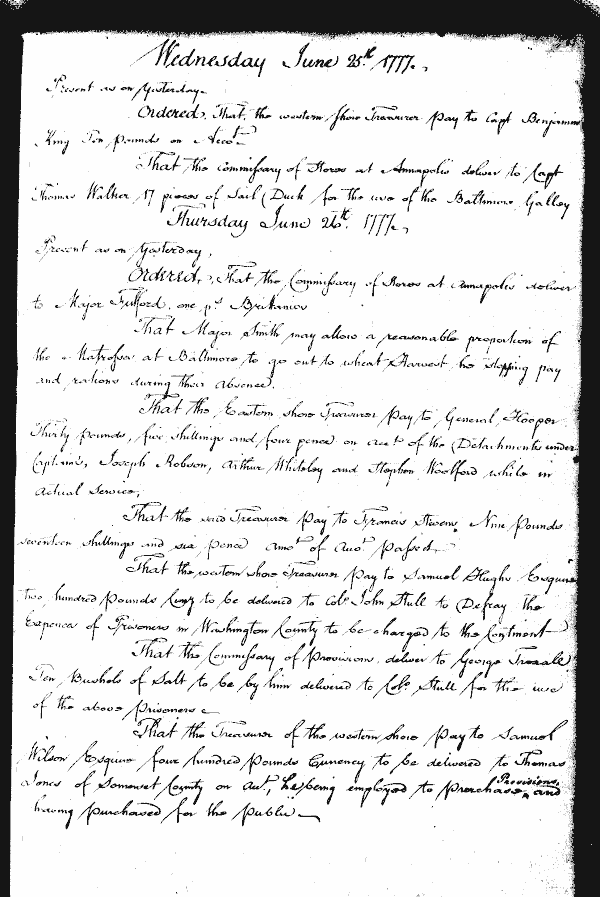 Wednesday June 25th. 1777.
Present as on Yesterday.
Ordered, That the western Shore Treasurer Pay to Capt Benjamin
King Ten pounds on Acct.
That the Commissary of Stores at Annapolis deliver to Capt
Thomas Walker 17 pieces of Sail Duck for the use of the Baltimore Galley
Thursday June 26th. 1777.
Present as on Yesterday,
Ordered, That the Commissary of Stores at Annapolis deliver
to Major Fulford, one ps. Brittanies
That Major Smith may allow a reasonable proportion of
the Matrosses at Baltimore to go out to wheat Harvest, he stopping pay
and rations during their absence.
That the Eastern shore Treasurer Pay to General Hooper
Thirty pounds, five shillings and four pence on acct. of the Detachments under
Captains, Joseph Robson, Arthur Whiteley and Stephen Woolford while in
actual Service,
That the said Treasurer Pay to Francis Stevens Nine Pounds
seventeen shillings and six pence amot. of Acct. passed.
That the western shore Treasurer pay to Samuel Hughs Esquire
two hundred Pounds Curry to be delivered to Colo. John Stull to Defray the
Expences of Prisoners in Washington County to be charged to the Continent
That the Commissary of Provisions, deliver to George Trexall
Ten Bushels of Salt to be by him delivered to Colo. Stull for the use
of the above Prisoners
That the Treasurer of the western shore pay to Samuel
Wilson Esquire four hundred Pounds Currency to be delivered to Thomas
Jones of Somerset County on acct., he being employed to Prerchase Provisions, and
having purchased for the Public.